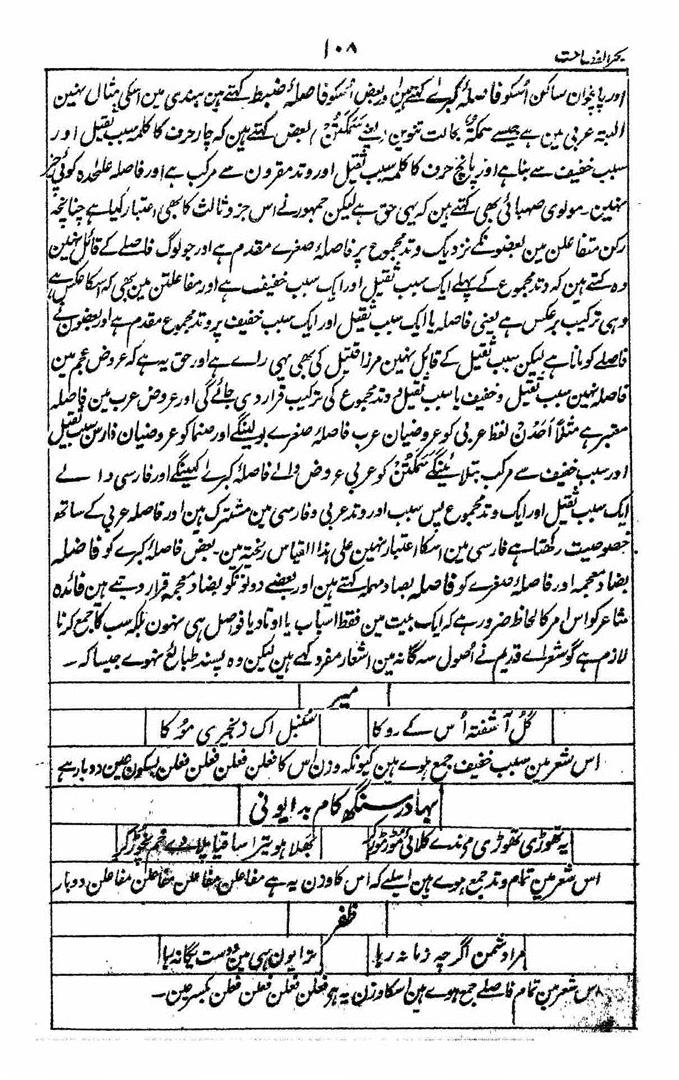 ۱۰۸
بحر الفصاحت
اور پانچوان ساکن اُسکو فاصلۂ کبرے کہتے ہین اور بعض اُسکو فاصلۂ ضبط کہتے ہین ہندی مین اسکی مثال نہین
البتہ عربی مین ہے جیسے سَمَکَۃٌ بحالت تنوین (یعنے سَمَکَتُن) بعض کہتے ہین کہ چار حرف کا کلمہ سبب ثقیل اور
سبب خفیف سے بنا ہے اور پانچ حرف کا کلمہ سبب ثقیل اور وتد مقرون سے مرکب ہے اور فاصلہ علٰحدہ کوئی چیز
نہین۔ مولوی صہبائی بھی کہتے ہین کہ یہی حق ہے لیکن جمہور نے اس جزو ثالث کا بھی اعتبار کیا ہے چنانچہ
رکن متفاعلن مین بعضونکے نزدیک وتد مجموع پر فاصلۂ صغرے مقدم ہے اور جو لوگ فاصلے کے قائل نہین
وہ کہتے ہین کہ وتد مجموع کے پہلے ایک سبب ثقیل اور ایک سبب خفیف ہے اور مفاعلتن مین بھی کہ اسکا عکس ہے
وہی ترکیب برعکس ہے یعنی فاصلہ یا ایک سبب ثقیل اور ایک سبب خفیف پر وتد مجموع مقدم ہے اور بعضون نے
فاصلے کو مانا ہے لیکن سبب ثقیل کے قائل نہین مرزا قتیل کی بھی یہی راے ہے اور حق یہ ہے کہ عروض عجم مین
فاصلہ نہین سبب ثقیل و خفیف یا سبب ثقیل و وتد مجموع کی ترکیب قرار دی جائے گی اور عروض عرب مین فاصلہ
معتبر ہے مثلاً اَحَدُن لفظ عربی کو عروضیان عرب فاصلۂ صغرے بولینگے اور صنما کو عروضیان فارس سبب ثقیل
اور سبب خفیف سے مرکب بتلائینگے سَمَکَتُن کو عربی عروض والے فاصلۂ کبرے کہینگے اور فارسی والے
ایک سبب ثقیل اور ایک وتد مجموع پس سبب اور وتد عربی و فارسی مین مشترک ہین اور فاصلہ عربی کے ساتھ
خصوصیت رکھتا ہے فارسی مین اسکا اعتبار نہین علیٰ ہذا القیاس ریختہ مین۔ بعض فاصلۂ کبرے کو فاضلہ
بضاد معجمہ اور فاصلۂ صغرے کو فاصلہ بصاد مہملہ کہتے ہین اور بعضے دونونکو بضاد معجمہ قرار دیتے ہین فائدہ
شاعر کو اس امر کا لحاظ ضرور ہے کہ ایک بیت مین فقط اسباب یا اوتاد یا فواصل ہی نہون بلکہ سب کا جمع کرنا
لازم ہے گو شعراے قدیم نے اُصول سہ گانہ مین اشعار مفرد کہے ہین لیکن وہ پسند طبائع نہوے جیسا کہ ۔
میر
گُل آشفتہ اُس کے رو کا سُنبل اک زنجیری مُو کا
اس شعر مین سبب خفیف جمع ہوے ہین کیونکہ وزن اس کا فعلن فعلن فعلن فعلن بسکون عین دوبار ہے
بہادر سنگھ کام بدایونی
یہ تھوڑی تھوڑی مے ندے کلائی موڑ موڑ کر بھلا ہو تیرا ساقیا پلا دے خم نچوڑ کر
اس شعر مین تمام وتد جمع ہوے ہین اسلیے کہ اس کا وزن یہ ہے مفاعلن مفاعلن مفاعلن مفاعلن دوبار
ظفر
مرا دشمن اگرچہ زمانہ رہا ترا یون ہی مین دوست یگانہ رہا
اس شعر مین تمام فاصلے جمع ہوے ہین اسکا وزن یہ ہے فعلن فعلن فعلن فعلن بکسر عین ۔